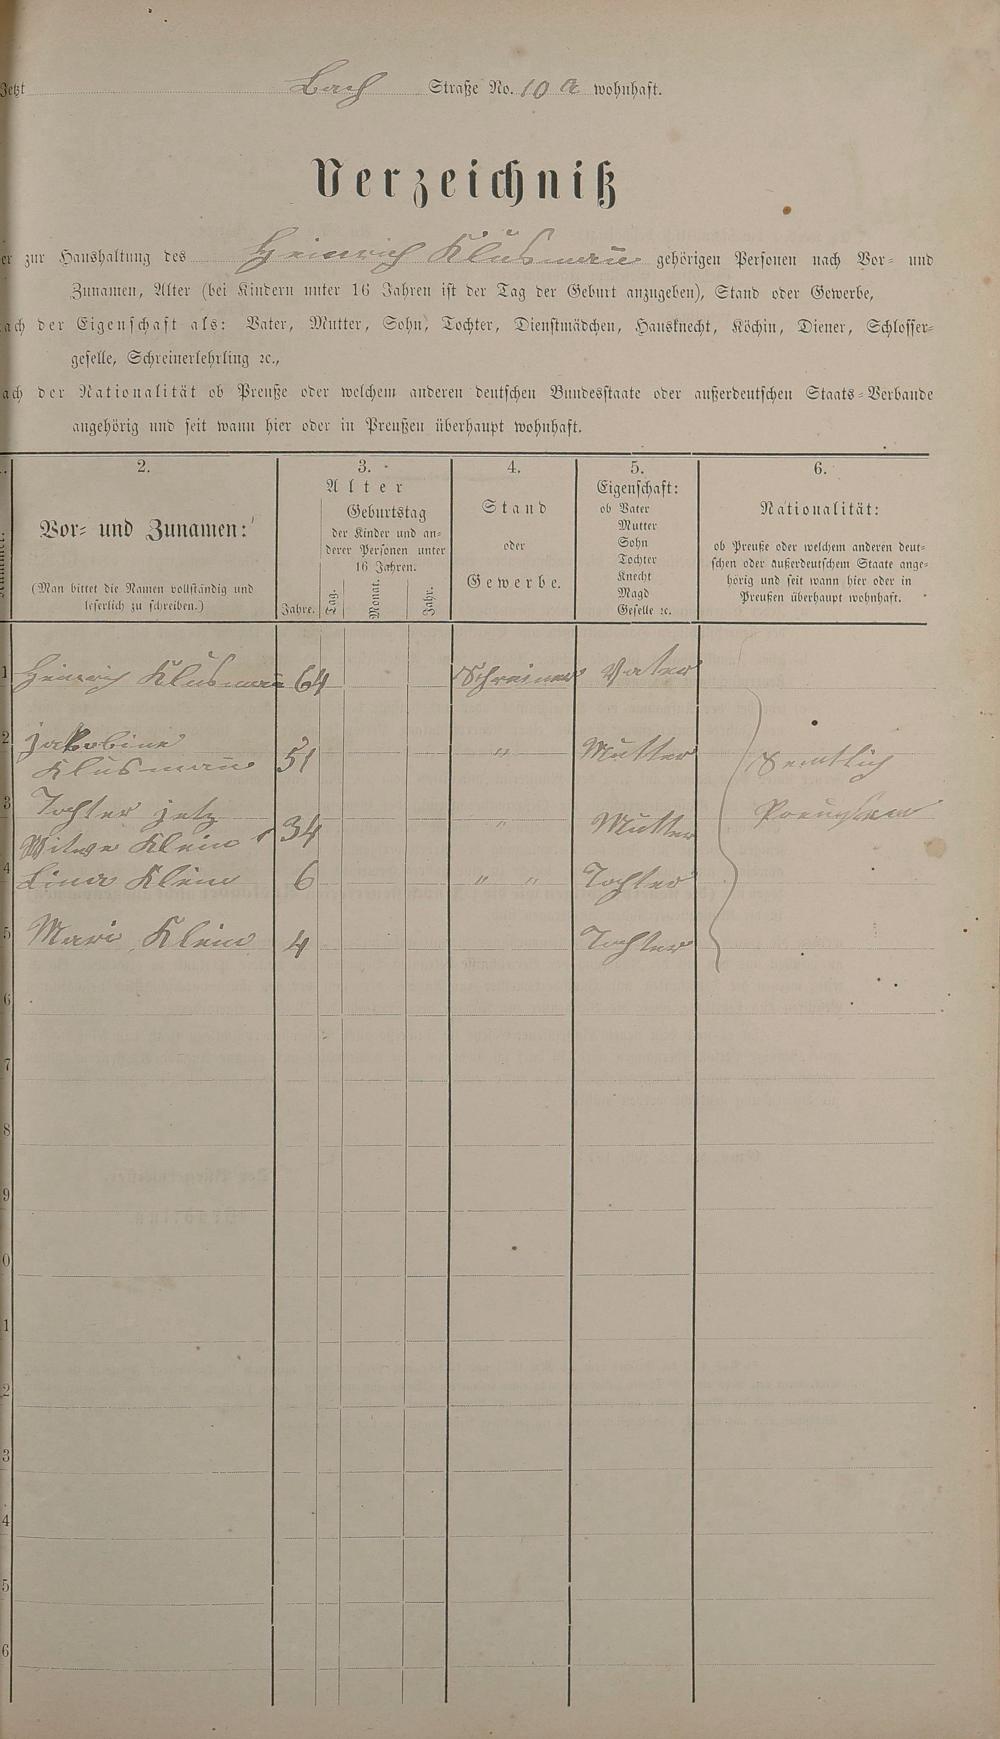 Jetzt Bach Straße No. 10 a wohnhaft.
Verzeichniß
er zur Haushaltung des Heinrich Klusmann gehörigen Personen nach Vor- und
Zunamen, Alter (bei Kindern unter 16 Jahren ist der Tag der Geburt anzugeben), Stand oder Gewerbe,
ach der Eigenschaft als: Vater, Mutter, Sohn, Tochter, Dienstmädchen, Hausknecht, Köchin, Diener, Schlosser-
geselle, Schreinerlehrling ꝛc.,
ach der Nationalität ob Preuße oder welchem anderen deutschen Bundesstaate oder außerdeutschen Staats-Verbande
angehörig und seit wann hier oder in Preußen überhaupt wohnhaft.
2.
Vor- und Zunamen:
(Man bittet die Namen vollständig und
leserlich zu schreiben.)
3.
Alter
Geburtstag
der Kinder und an-
derer Personen unter
16 Jahren.
Jahre. Tag. Monat. Jahr.
4.
Stand
oder
Gewerbe.
5.
Eigenschaft:
ob Vater
Mutter
Sohn
Tochter
Knecht
Magd
Geselle ꝛc.
6.
Nationalität:
ob Preuße oder welchem anderen deut-
schen oder außerdeutschem Staate ange-
hörig und seit wann hier oder in
Preußen überhaupt wohnhaft.
1 Heinrich Klusmann 64 Schreiner Vater
2 Jakobine
Klusmann 51 " Mutter Semtlich
3 Tochter jetz Preussen
Witwe Klein 34 " Mutter
4 Lina Klein 6 " " Tochter
5 Mari Klein 4 Tochter
6
7
8
9
0
1
2
3
4
5
6